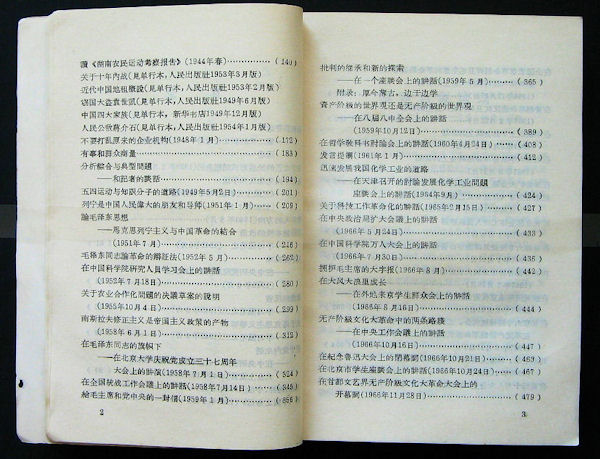 讀《湖南农民运动考察报告》(1944年春)……(140)
关于十年内战(見单行本,人民出版社1953年3月版)
近代中国地租概說(見单行本,人民出版社1953年2月版)
窃国大盗袁世凱(見单行本,人民出版社1949年6月版)
中国四大家族(見单行本,新华书店1949年12月版)
人民公敌蔣介石(見单行本,人民出版社1954年1月版)
不要打乱原来的企业机构(1948年1月)……(172)
有事和群众商量……(183)
分析綜合与典型問題
——和記者的談話……(194)
五四运动与知識分子的道路(1949年5月2日)……(201)
列宁是中国人民偉大的朋友和导师(1951年1月)……(209)
論毛泽东思想
——馬克思列宁主义与中国革命的結合
(1951年7月)……(216)
毛泽东同志論革命的辯証法(1952年5月)……(262)
在中国科学院研究人員学习会上的讲話
(1952年7月18日)……(280)
关于农业合作化問題的决議草案的說明
(1955年10月4日)……(299)
南斯拉夫修正主义是帝国主义政策的产物
(1958年6月1日)……(312)
在毛泽东同志的旗帜下
——在北京大学庆祝党成立三十七周年
大会上的讲演(1958年7月1日)……(324)
在全国統战工作会議上的讲話(1958年7月14日)……(345)
給毛主席和党中央的一封信(1959年1月)……(356)
2
批判的继承和新的探索
——在一个座談会上的讲話(1959年5月)……(365)
附录:厚今薄古,边干边学
資产阶級的世界观还是无产阶級的世界观
——在八届八中全会上的讲話
(1959年10月12日)……(389)
在哲学教科书討論会上的讲話(1960年4月24日)……(408)
发言提綱(1961年1月)……(412)
迅速发展我国化学工业的道路
——在天津召开的討論发展化学工业問題
座談会上的讲話(1964年9月)……(424)
关于科技工作革命化的讲話(1965年2月15日)……(427)
在中央政治局扩大会議上的讲話
(1966年5月24日)……(433)
在中国科学院万人大会上的讲話
(1966年7月30日)……(436)
拥护毛主席的大字报(1966年8月)……(442)
在大风大浪里成长
——在外地来京学生群众会上的讲話
(1966年8月16日)……(444)
无产阶級文化大革命中的两条路綫
——在中央工作会議上的讲話
(1966年10月16日)……(447)
在紀念魯迅大会上的閉幕詞(1966年10月31日)……(463)
在北京市学生座談会上的讲話(1966年10月24日)……(467)
在首都文艺界无产阶級文化大革命大会上的
开幕詞(1966年11月28日)……(479)
3